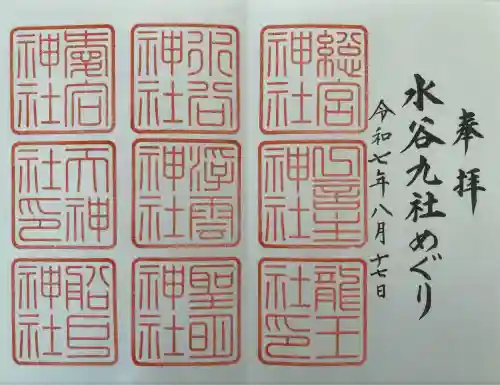 奉拝
水谷九社めぐり
令和七年八月十七日
総宮神社
一言主神社
龍王社印
水谷神社
浮雲神社
聖明神社
愛宕神社
天神社印
船戸神社